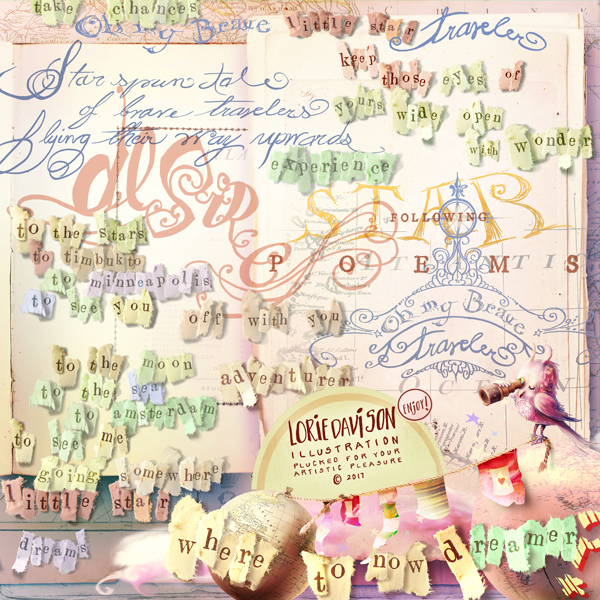 take chances
Oh my Brave
little star
Traveler
keep
those eyes of
yours wide open
with wonder
experience
Star spun tale
of brave travelers
flying their way upwards
STAR
FOLLOWING
POEMS
to the stars
to timbukto
to minneapolis
to see you
off with you
Oh my Brave
Traveler
to the moon
adventurer
to the sea
to amsterdam
to see me
going somewhere
little star
dreams
LORIE DAVISON
ILLUSTRATION
PLUCKED FOR YOUR
ARTISTIC PLEASURE
© 2017
ENJOY!
where
to now dreamer